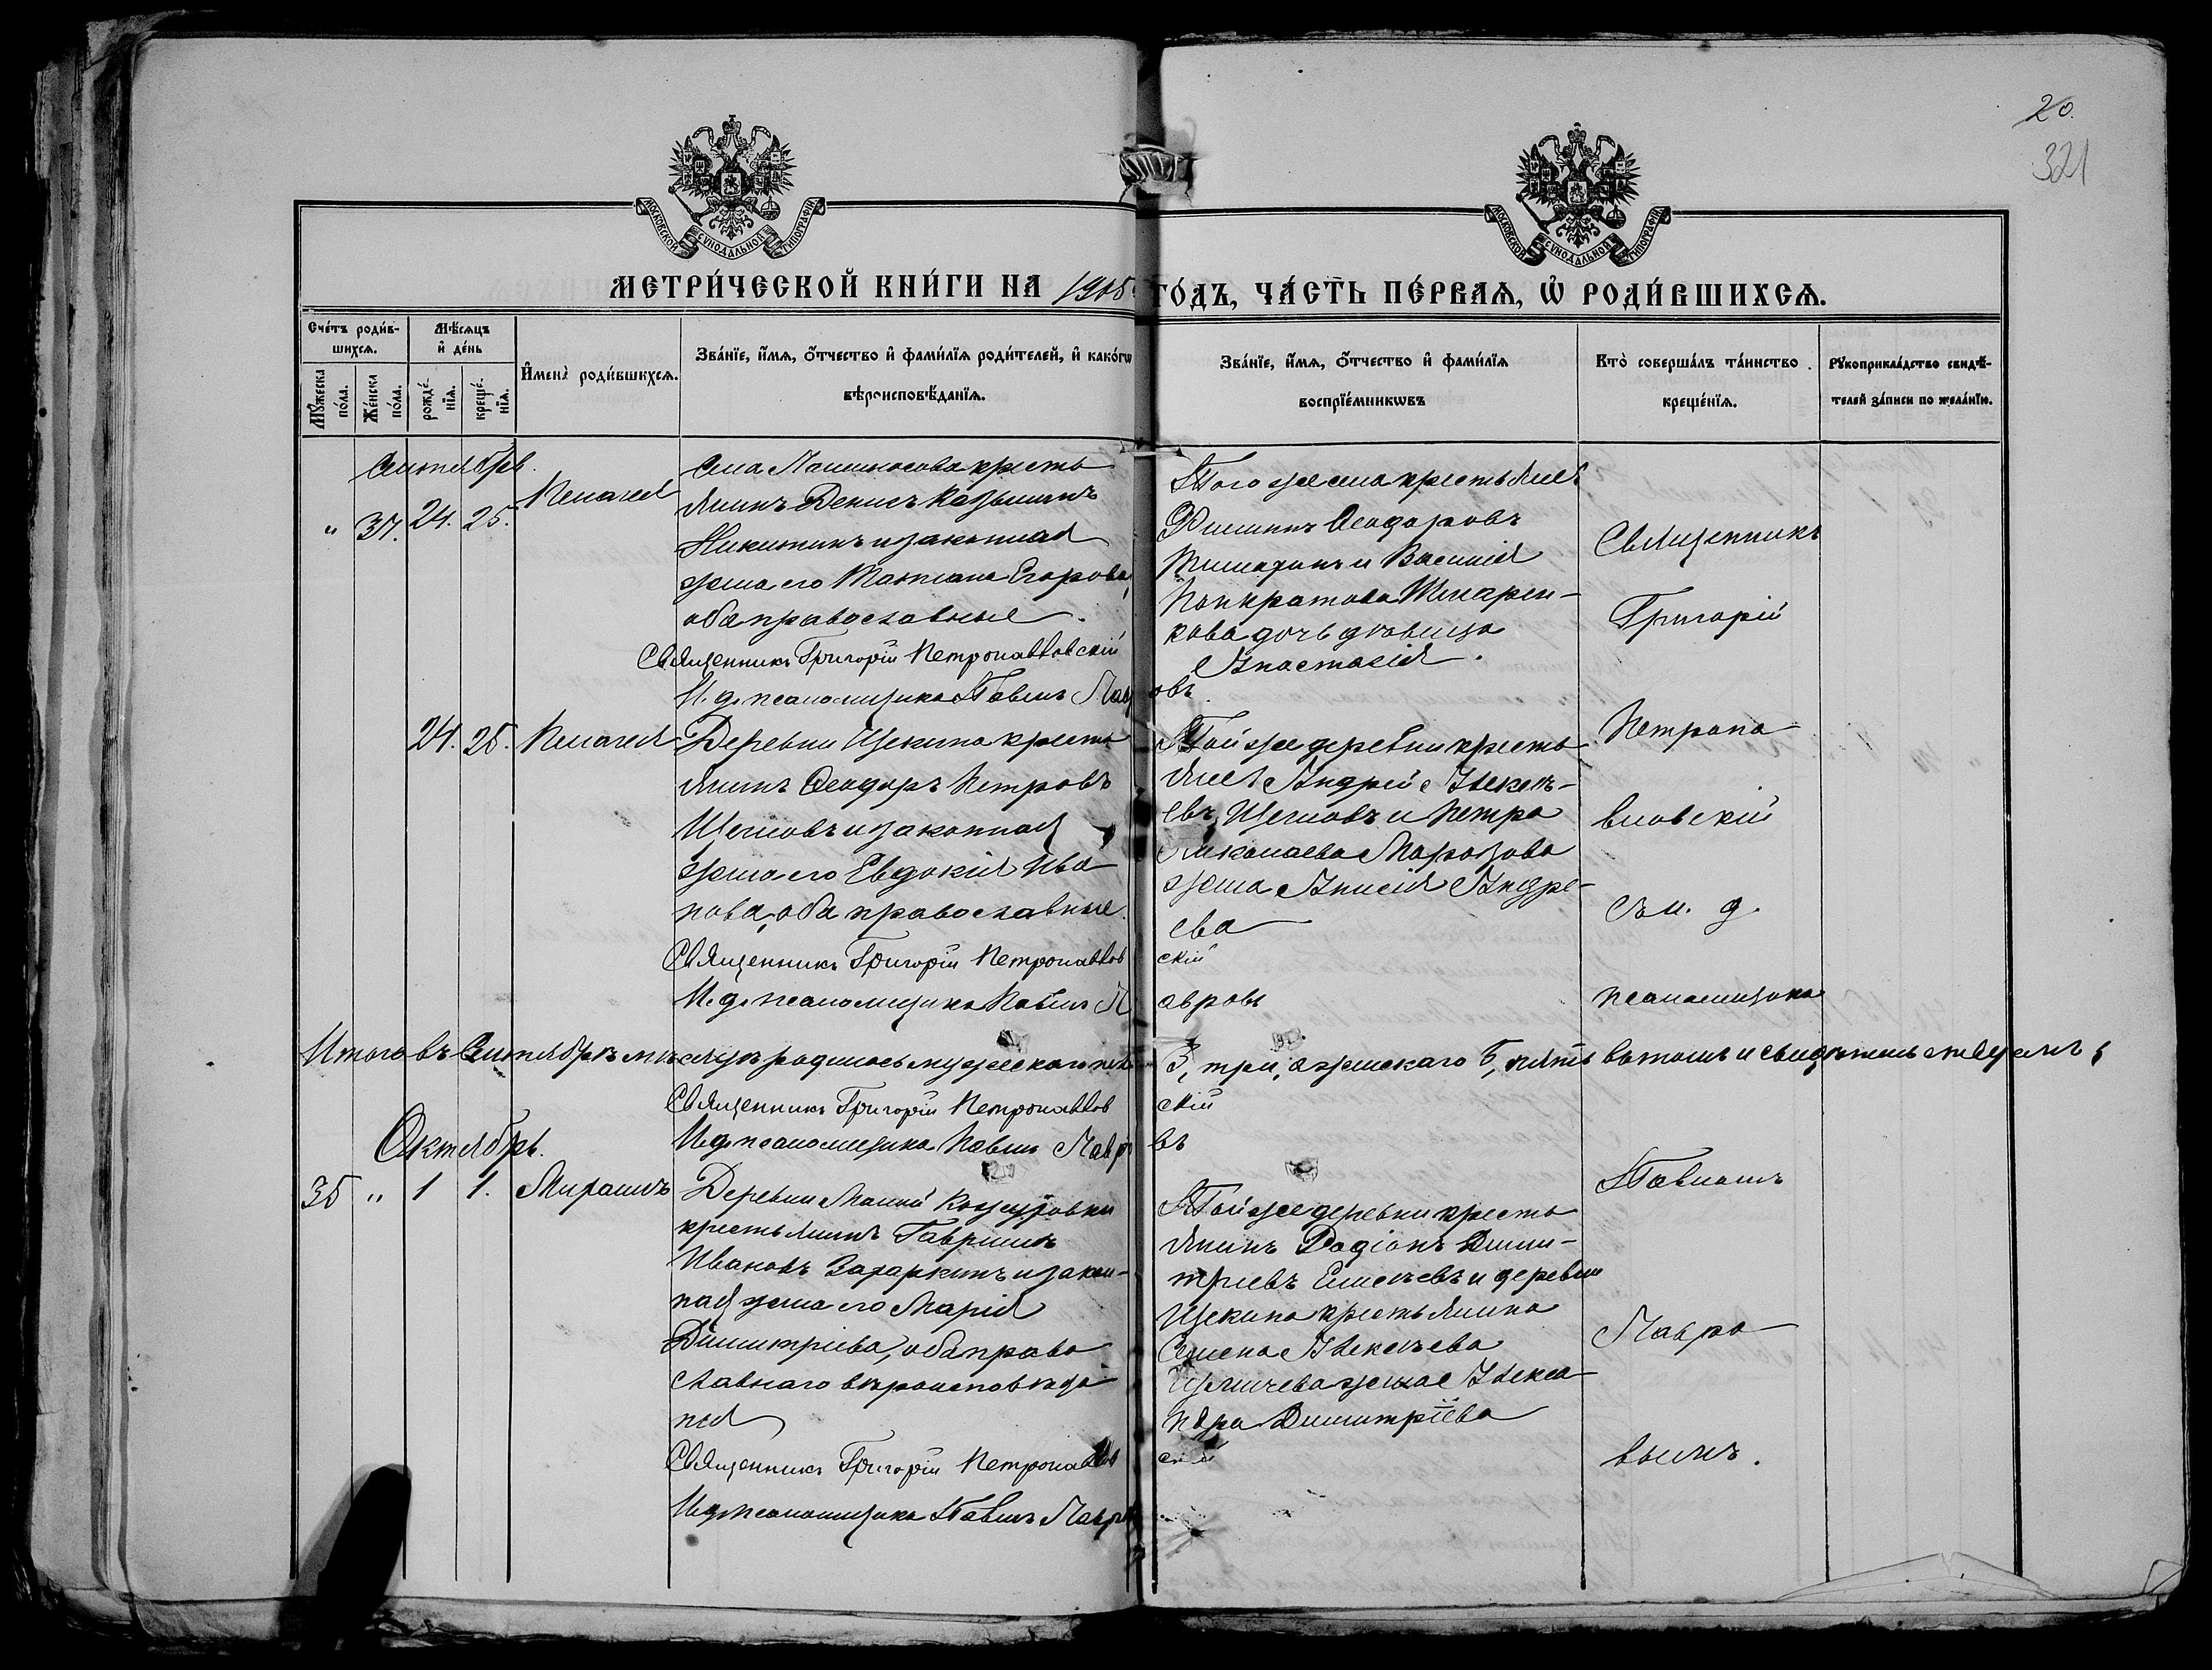 20.
321
МОСКОВСКОЙ СѴНОДАЛЬНОЙ ТИПОГРАФІИ
МОСКОВСКОЙ СѴНОДАЛЬНОЙ ТИПОГРАФІИ
МЕТРИ́ЧЕСКОЙ КНИ́ГИ НА 1905 ГО́ДЪ, ЧА́СТЬ ПЕ́РВАѦ, Ѽ РОДИ́ВШИХСѦ.
Сче́тъ роди́в-
шихсѧ.
Мꙋ́жеска по́ла.
Же́нска по́ла.
Мѣ́сѧцъ
и҆ де́нь
рожде́-
нїѧ.
креще́-
нїѧ.
И҆мена̀ роди́вшихсѧ.
Зва́нїе, и҆́мѧ, ѻ҆́тчество и҆ фами́лїѧ роди́телей, и҆ како́гѡ
вѣроисповѣ́данїѧ.
Зва́нїе, и҆́мѧ, ѻ҆́тчество и҆ фами́лїѧ
воспрїе́мникѡвъ
Кто̀ соверша́лъ та́инство
креще́нїѧ.
Рꙋкоприкла́дство свидѣ́-
телей за́писи по жела́нїю.
Сентябрь.
" 37. 24. 25. Пелагея
крестьянинъ Денисъ Козьминъ
Никитинъ и законная
жена его Татиана Егорова,
оба православные.
Священникъ Григорій Петропавловскій
И. д. псаломщика Павелъ Лавровъ
Того же села крестьянинъ
Филиппъ Ѳеодоровъ
и Василія
Панкратова
кова дочь девица
Анастасія.
Священникъ
Григорій
Петропа
вловскій
съ и. д.
псаломщика
Павломъ
Лавро
вымъ.
24. 25. Пелагея
Деревни Щекина кресть
янинъ Ѳеодоръ Петровъ
Щегловъ и законная
жена его Евдокія Ива
нова, оба православные.
Священникъ Григорій Петропавловскій
И. д. псаломщика Павелъ Лавровъ
Той же деревни кресть
яне Андрей Алексѣ-
евъ Щегловъ и Петра
Николаева Морозова
жена Анисія Андре-
ева
Итого въ Сентябрѣ мѣсяцѣ родилось мужескаго пола 3, три, а женскаго 5, пять въ томъ и свидѣтельствуемъ:
Священникъ Григорій Петропавловскій
И. д. псаломщика Павелъ Лавровъ
Октябрь.
35 " 1 1.
Деревни Малой Кожуховки
крестьянинъ Гавріилъ
Ивановъ Захаркинъ и закон-
ная жена его Марія
Димитріева, оба право
славнаго вѣроисповѣда
нія
Священникъ Григорій Петропавловскій
И. д. псаломщика Павелъ Лавровъ
Той же деревни кресть
янинъ Родіонъ Дими-
тріевъ Елисѣевъ и деревни
Щекина крестьянина
Семена Алексѣева
жена Алекса
ндра Димитріева